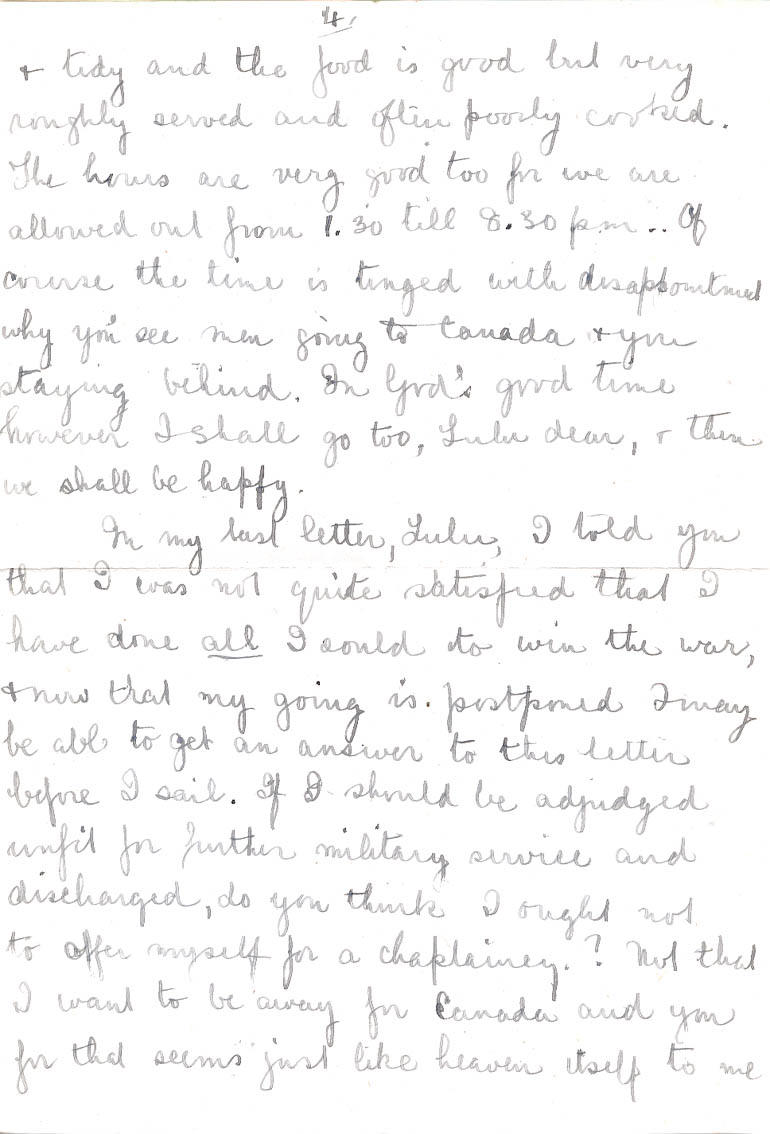 4.
+ tidy and the food is good but very
roughly served and often poorly cooked.
The hours are very good too for we are
allowed out from 1.30 till 8.30 p.m.. Of
course the time is tinged with disappointment
why you see men going to Canada + you
staying behind. In God's good time
however I shall go too, Lulu dear, + then
we shall be happy.
In my last letter, Lulu, I told you
that I was not quite satisfied that I
have done all I could to win the war,
+ now that my going is postponed I may
be able to get an answer to this letter
before I sail. If I should be adjudged
unfit for further military service and
discharged, do you think I ought not
to offer myself for a chaplaincy.? Not that
I want to be away for Canada and you
for that seems just like heaven itself to me